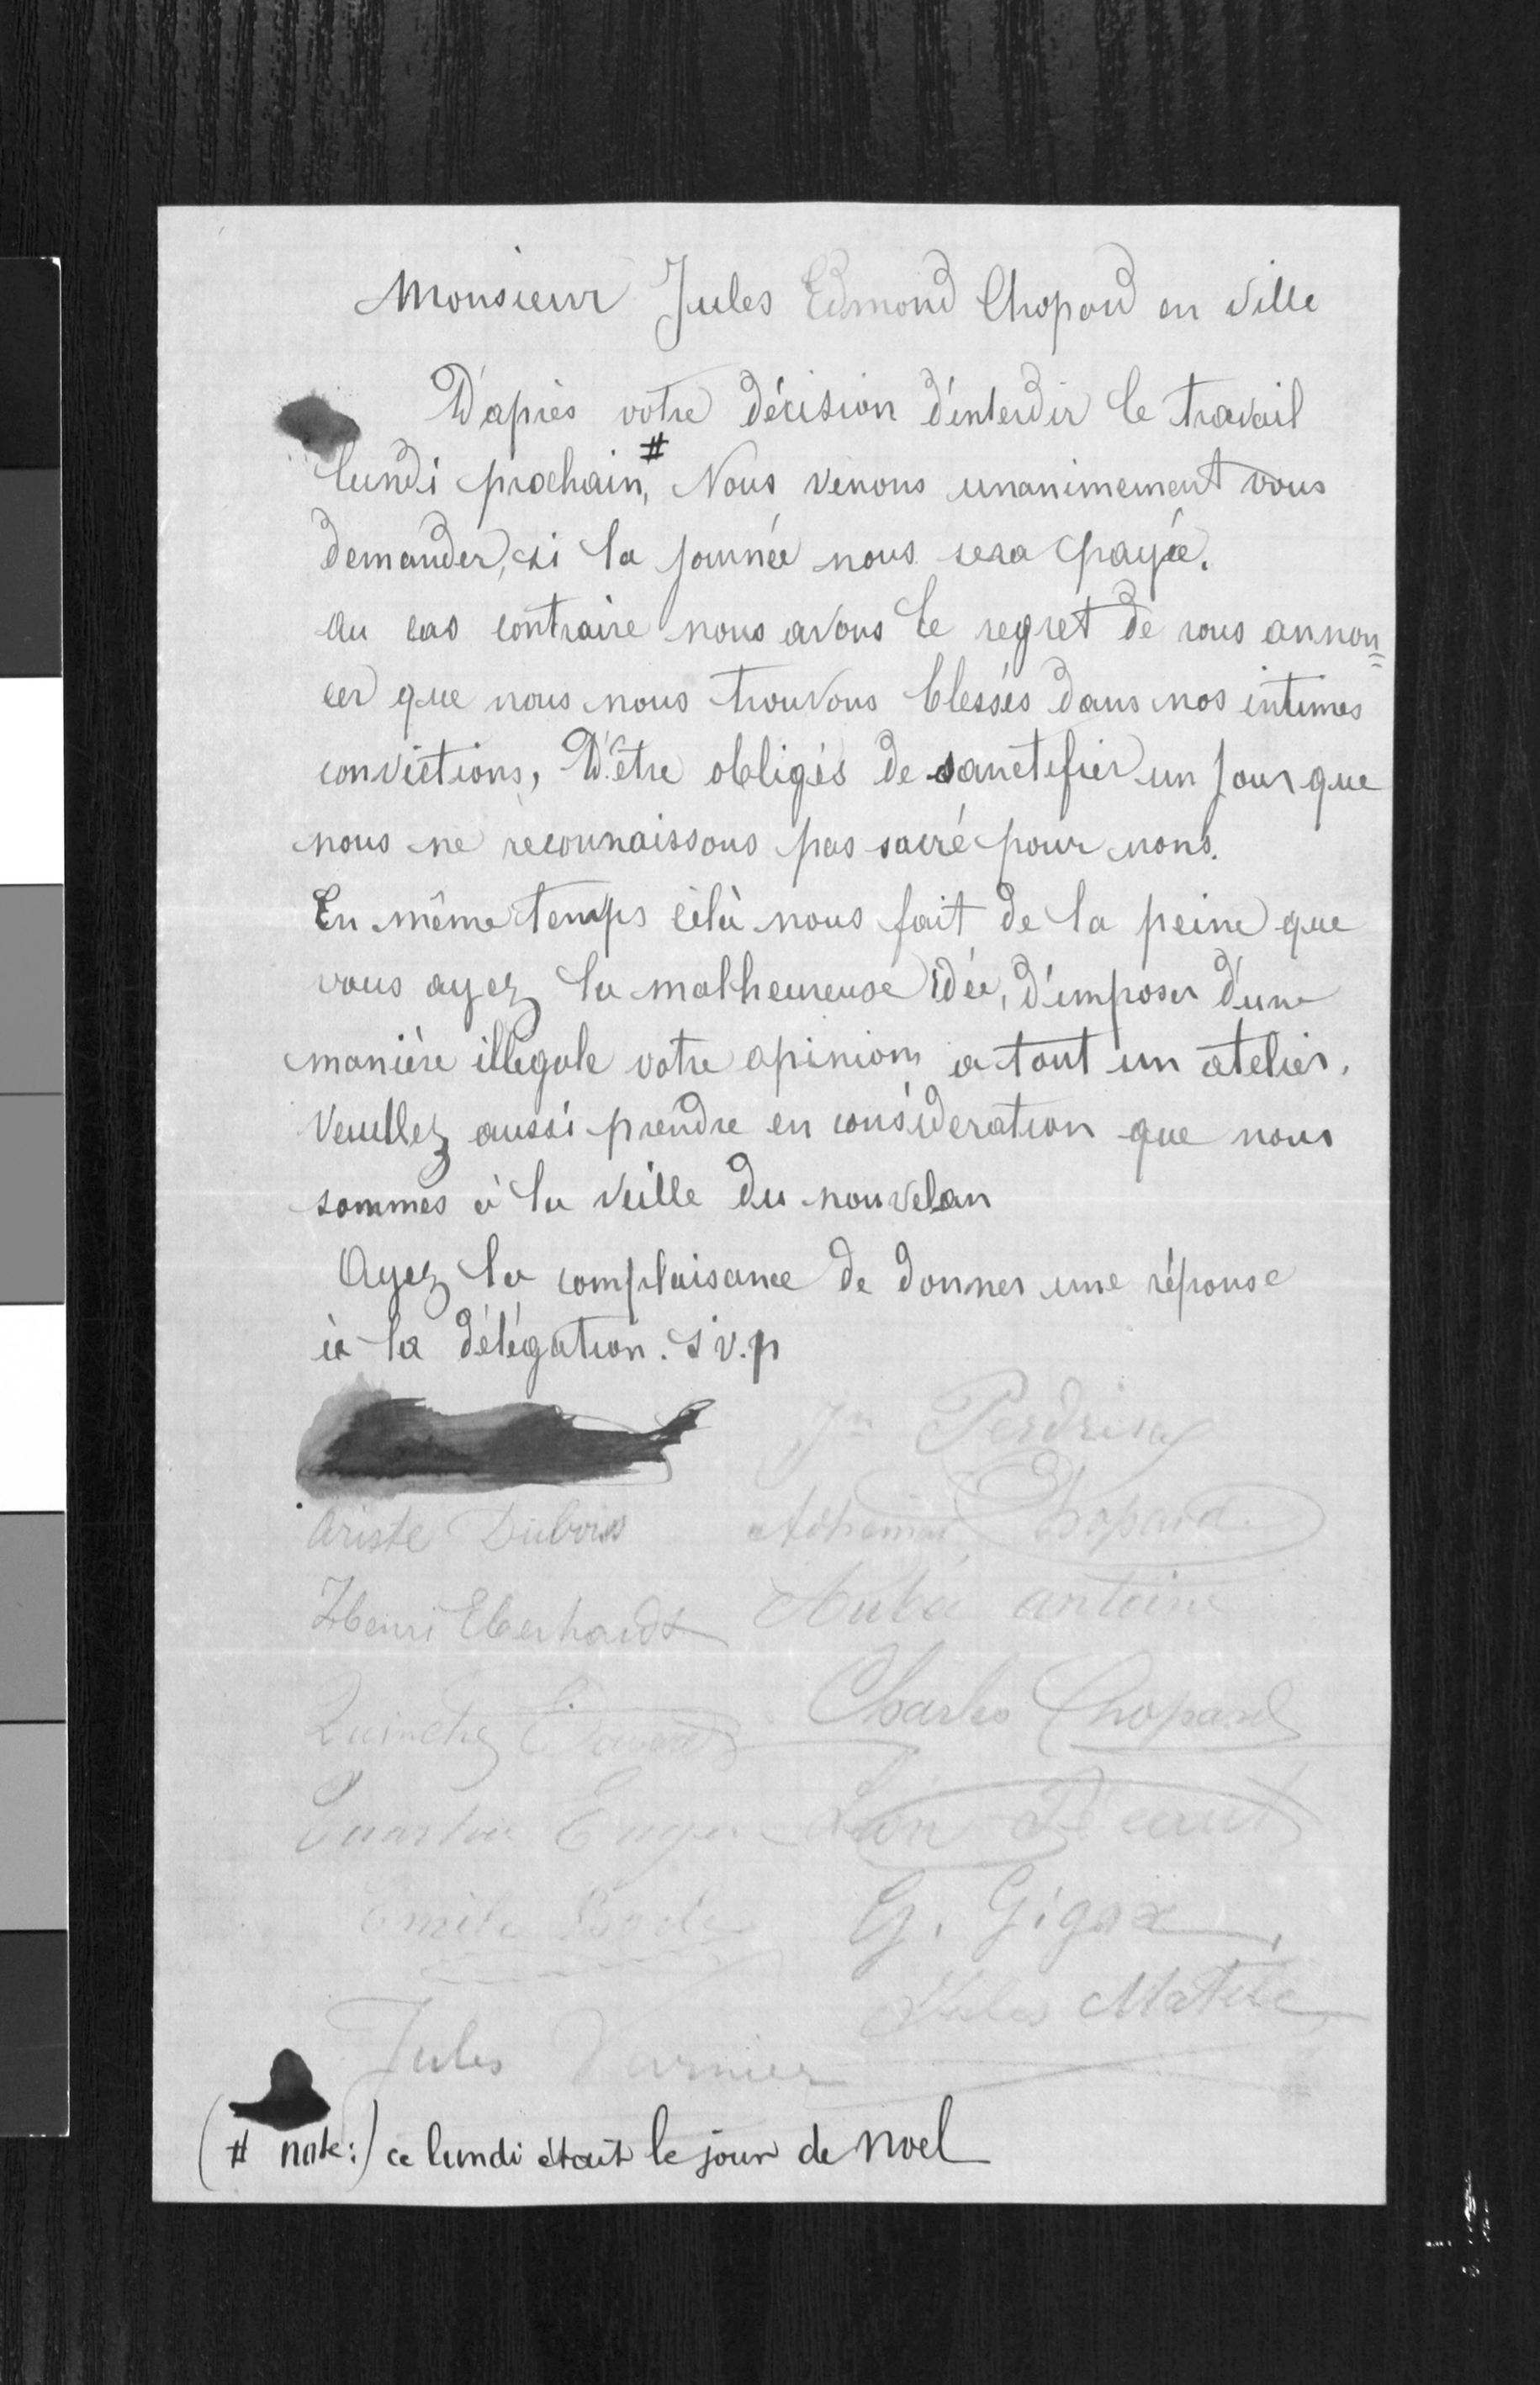 Monsieur Jules Edmond Chopard en Ville
D'après votre décision d'interdir le travail
lundi prochain,# Nous venons unanimement vous
demander, si la journée nous sera payée.
Au cas contraire nous avons le regret de vous annon=
cer que nous nous trouvons blessés dans nos intimes
convictions, D'être obligés de sanctefier un jour que
nous ne reconnaissons pas sacré pour nous.
En même temps célà nous fait de la peine que
vous ayez la malheureuse idée, d'imposer d'une
manière illégale votre opinions a tout un atelier.
Veuillez aussi prendre en considération que nous
sommes à la veille du nouvelan
Ayez la complaisance de donner une réponse
à la délégation. s'v.p
Perdrisa
Ariste Dubois Chopard
Henri Eberhardt antoine
Charles Chopard
Emile G. Gigax
Jules Matile
Jules
(# note:) ce lundi était le jour de Noel